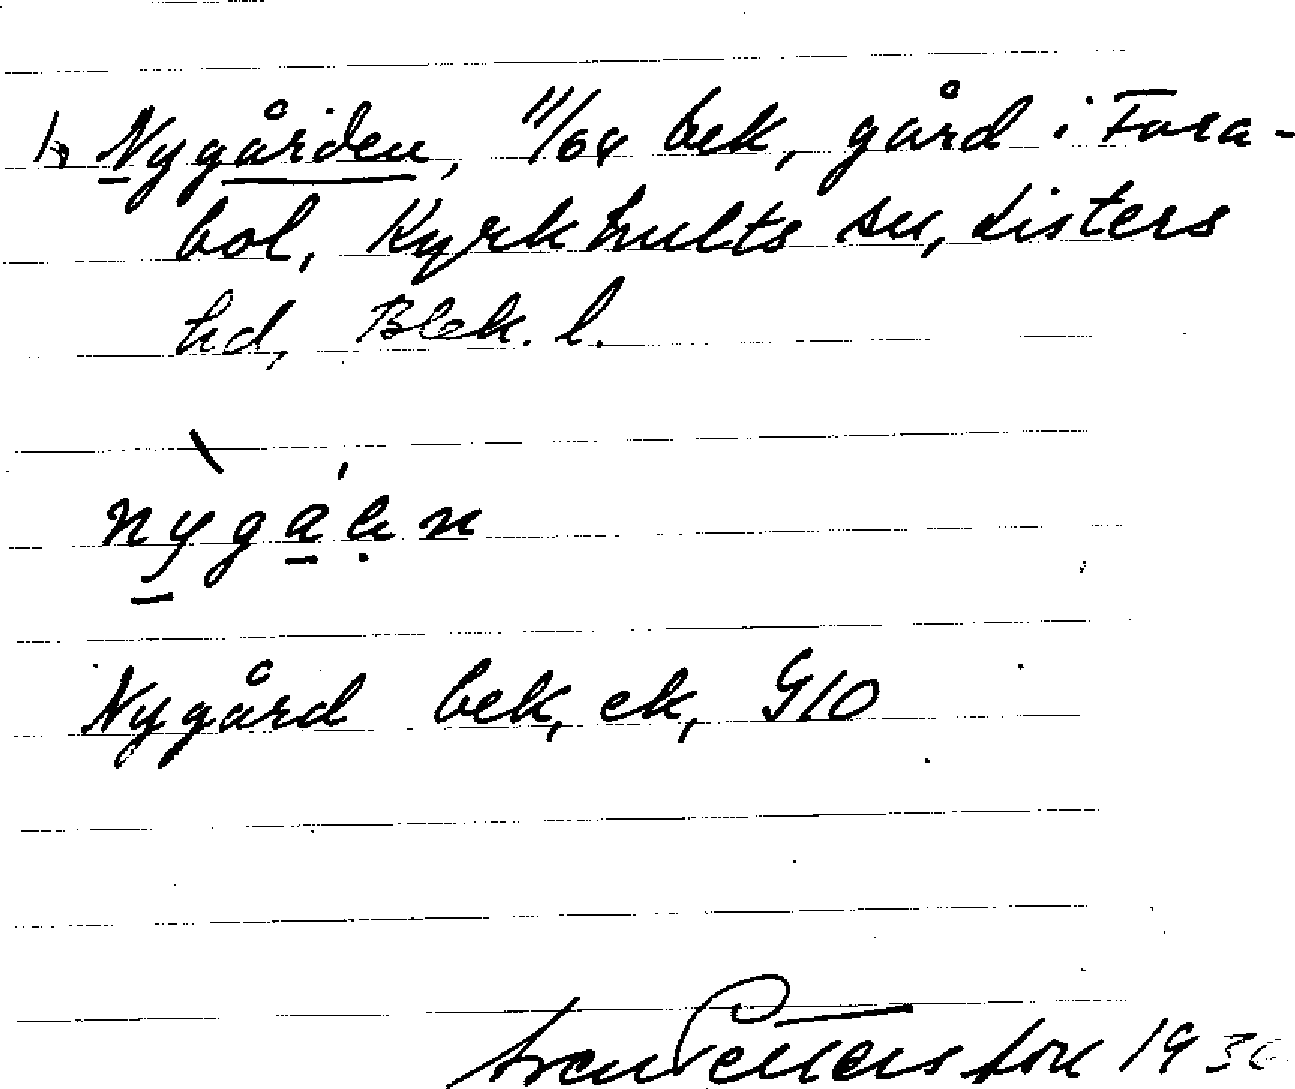 Nygården, 11/64 bek, gård i Fara-
bol, Kyrkhults sn, Listers
hd, Blek. l.
nygån
Nygård bek, ek, G10
Sven Petterson 1930